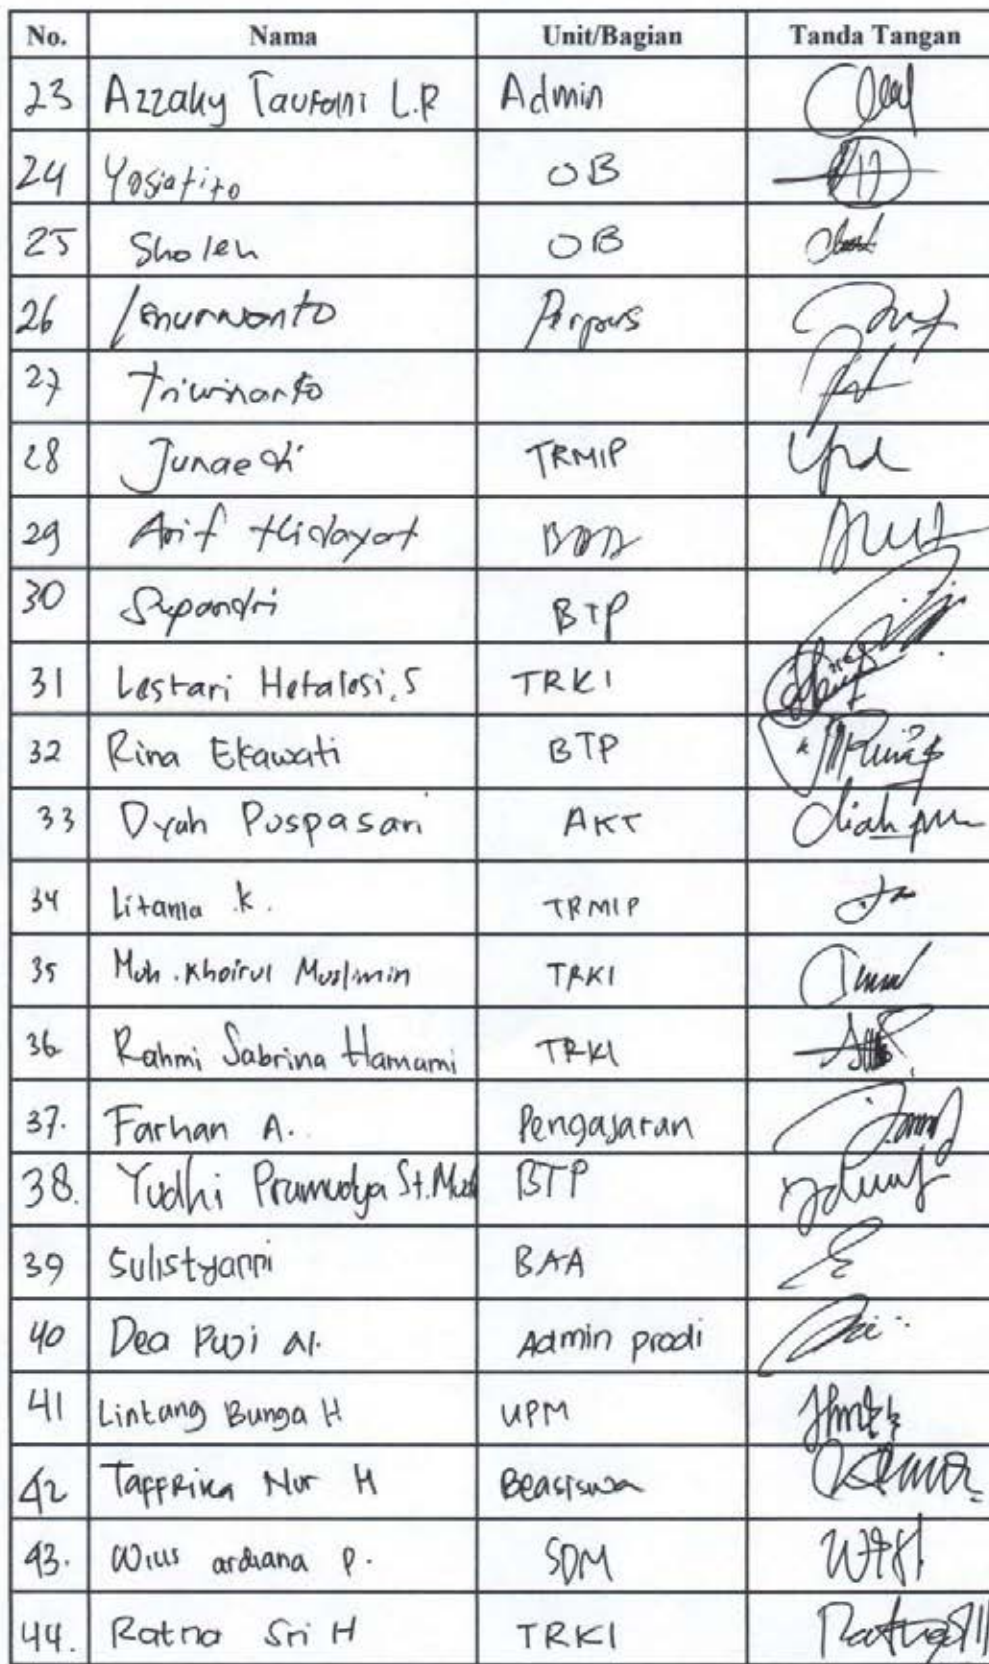 No. Nama Unit/Bagian Tanda Tangan
23 Azzaky Taufani L.R Admin
24 Yosiatito OB
25 Sholeh OB
26 Isnurwanto Perpus
27 Triwinarto
28 Junaedi TRMIP
29 Arif Hidayat
30 Supandri BTP
31 Lestari Hetalesi.S TRKI
32 Rina Ekawati BTP
33 Dyah Puspasari AKT
34 Litania .K. TRMIP
35 Muh. Khoirul Muslimin TRKI
36 Rahmi Sabrina Hamami TRKI
37. Farhan A. Pengajaran
38. Yudhi Pramudya St. BTP
39 Sulistyanni BAA
40 Dea Puji Al. Admin prodi
41 Lintang Bunga H UPM
42 Taffrika Nur H Beasiswa
43. Wius ardiana P. SDM
44. Ratna Sri H TRKI